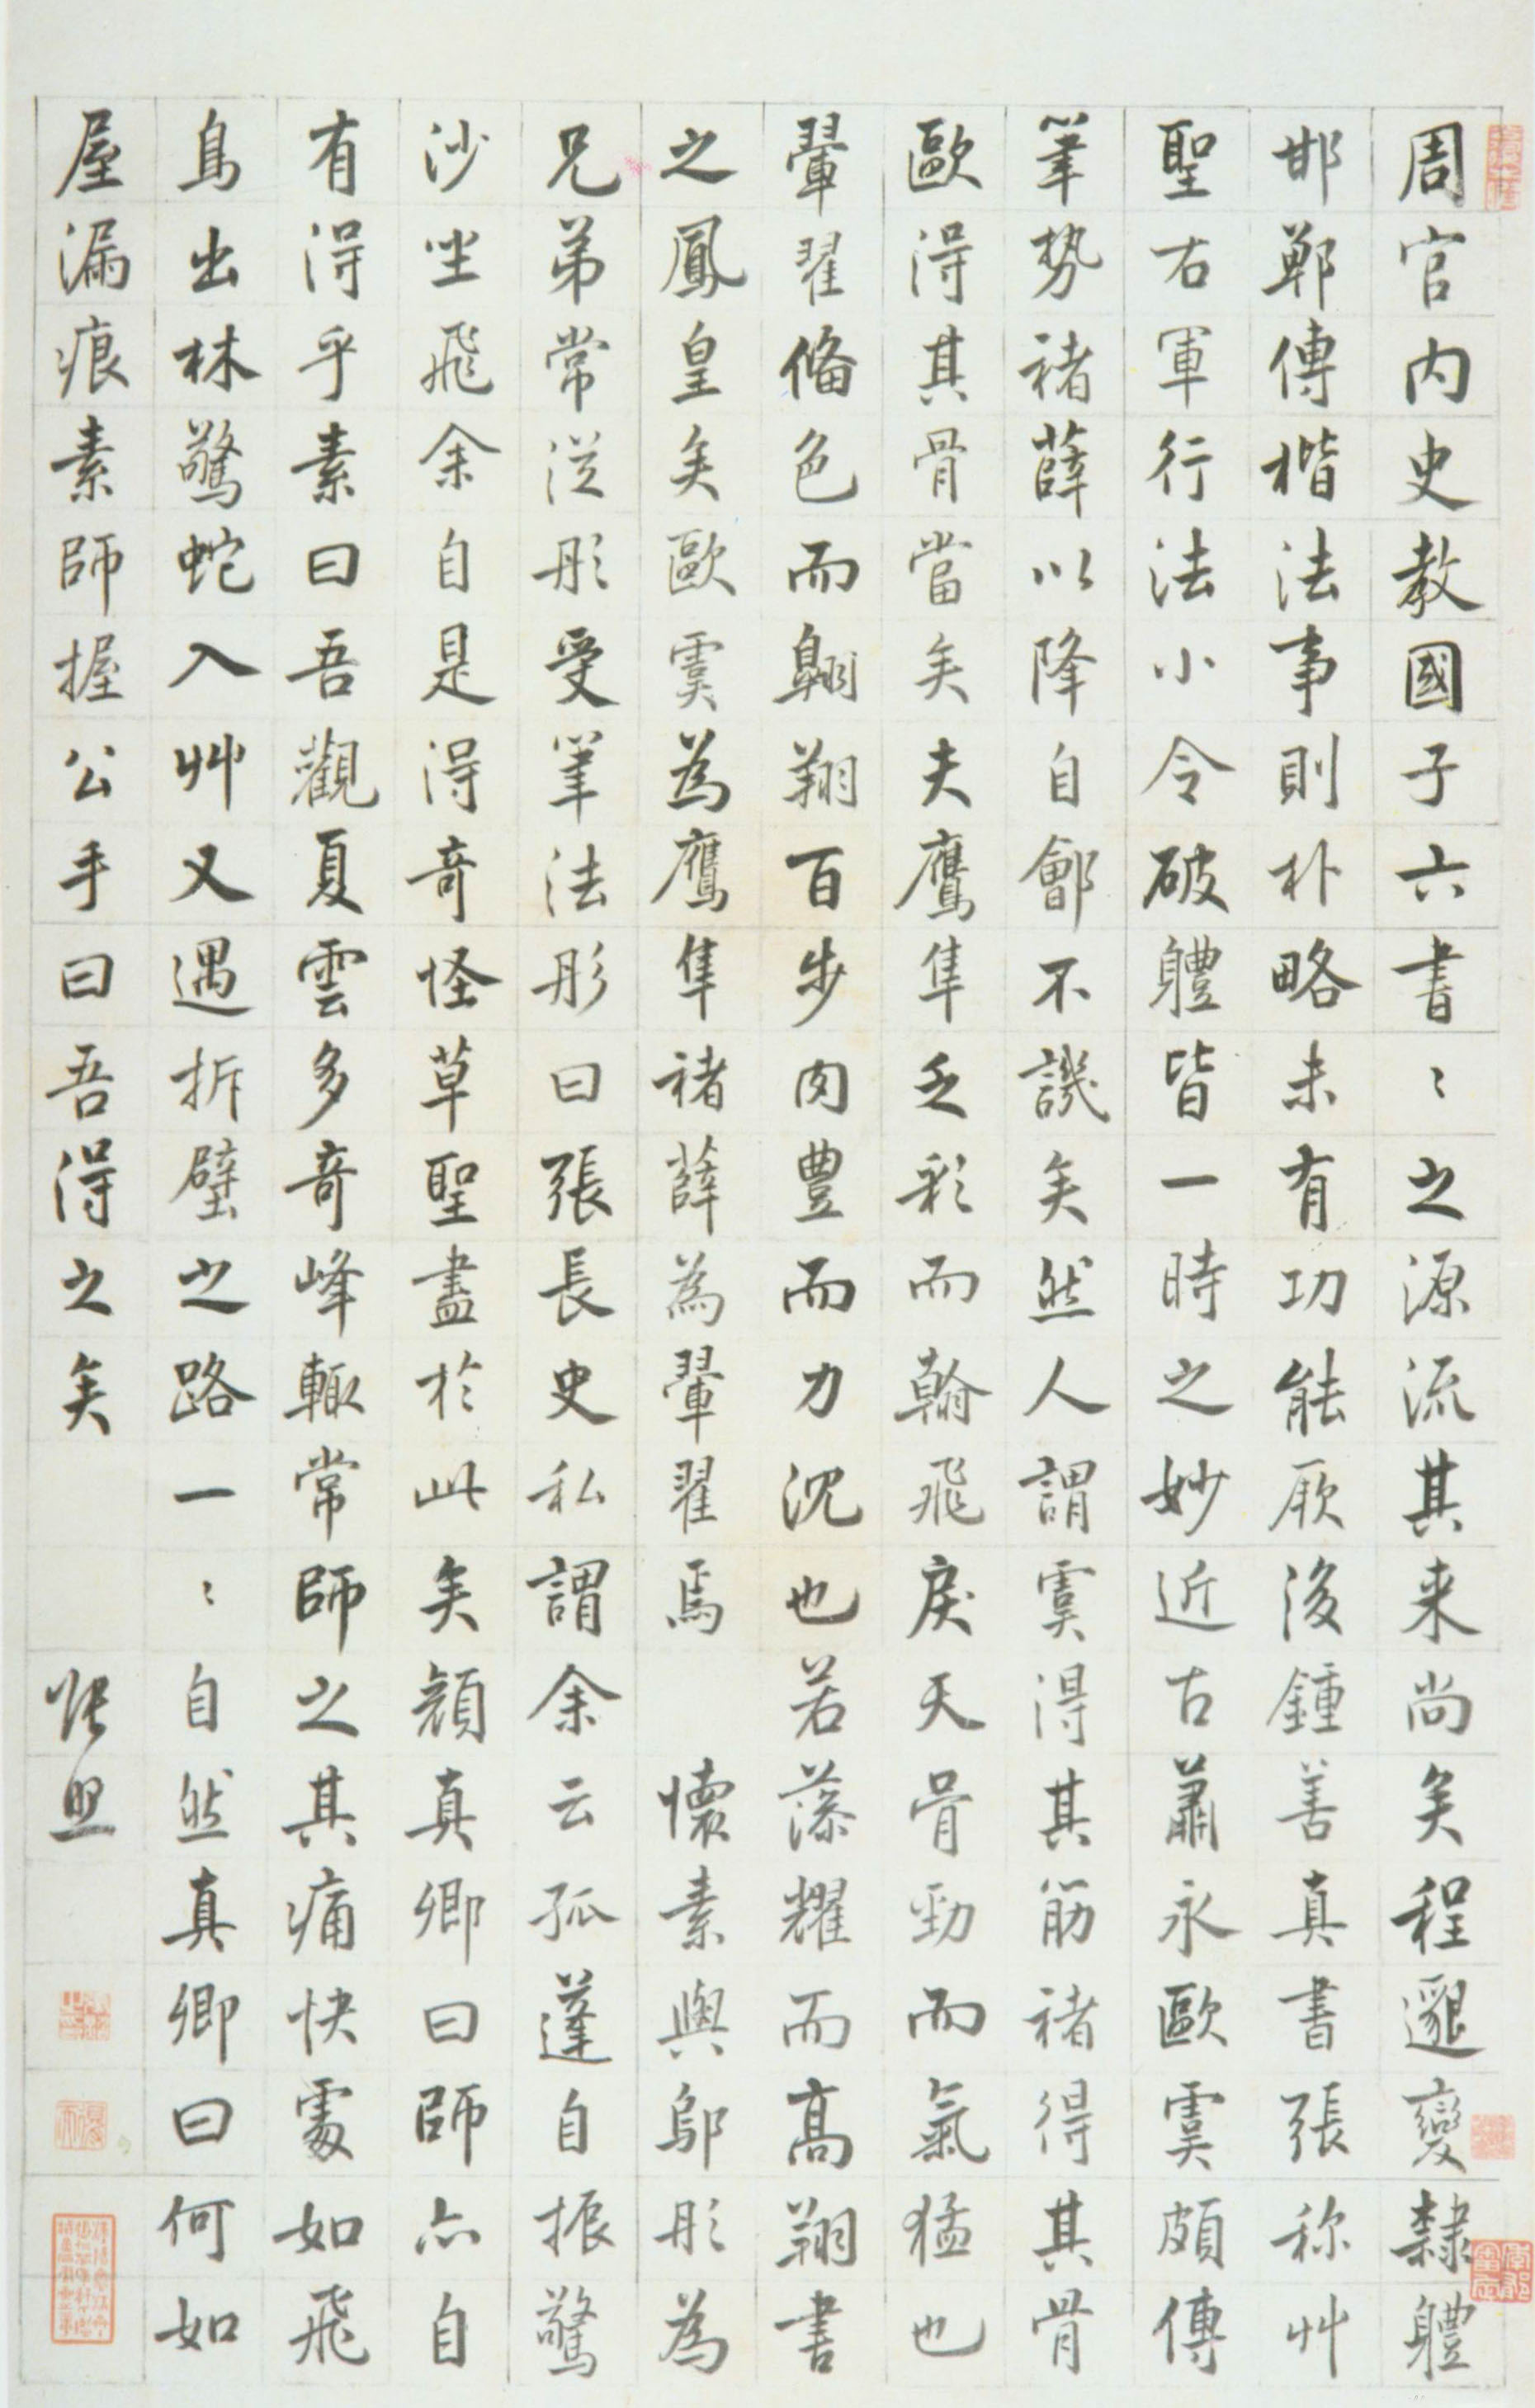 周官内史教國子六書〻之源流其来尚矣程邈變隸體
邯鄲傳楷法事則朴略未有功能厥後鍾善真書張称艸
聖右軍行法小令破體皆一時之妙近古蕭永歐虞頗傳
筆勢褚薛以降自鄶不譏矣然人謂虞得其筋褚得其骨
歐得其骨當矣夫鷹隼乏彩而翰飛戾天骨勁而氣猛也
翬翟俻色而翱翔百步肉豊而力沈也若藻耀而高翔書
之鳳皇矣歐虞為鷹隼褚薛為翬翟焉 懷素與鄔彤為
兄弟常從彤受筆法彤曰張長史私謂余云孤蓬自振驚
沙坐飛余自是得奇怪草聖盡於此矣顏真卿曰師亦自
有得乎素曰吾觀夏雲多奇峰輒常師之其痛快處如飛
鳥出林驚蛇入艸又遇拆壁之路一〻自然真卿曰何如
屋漏痕素師握公手曰吾得之矣 張照